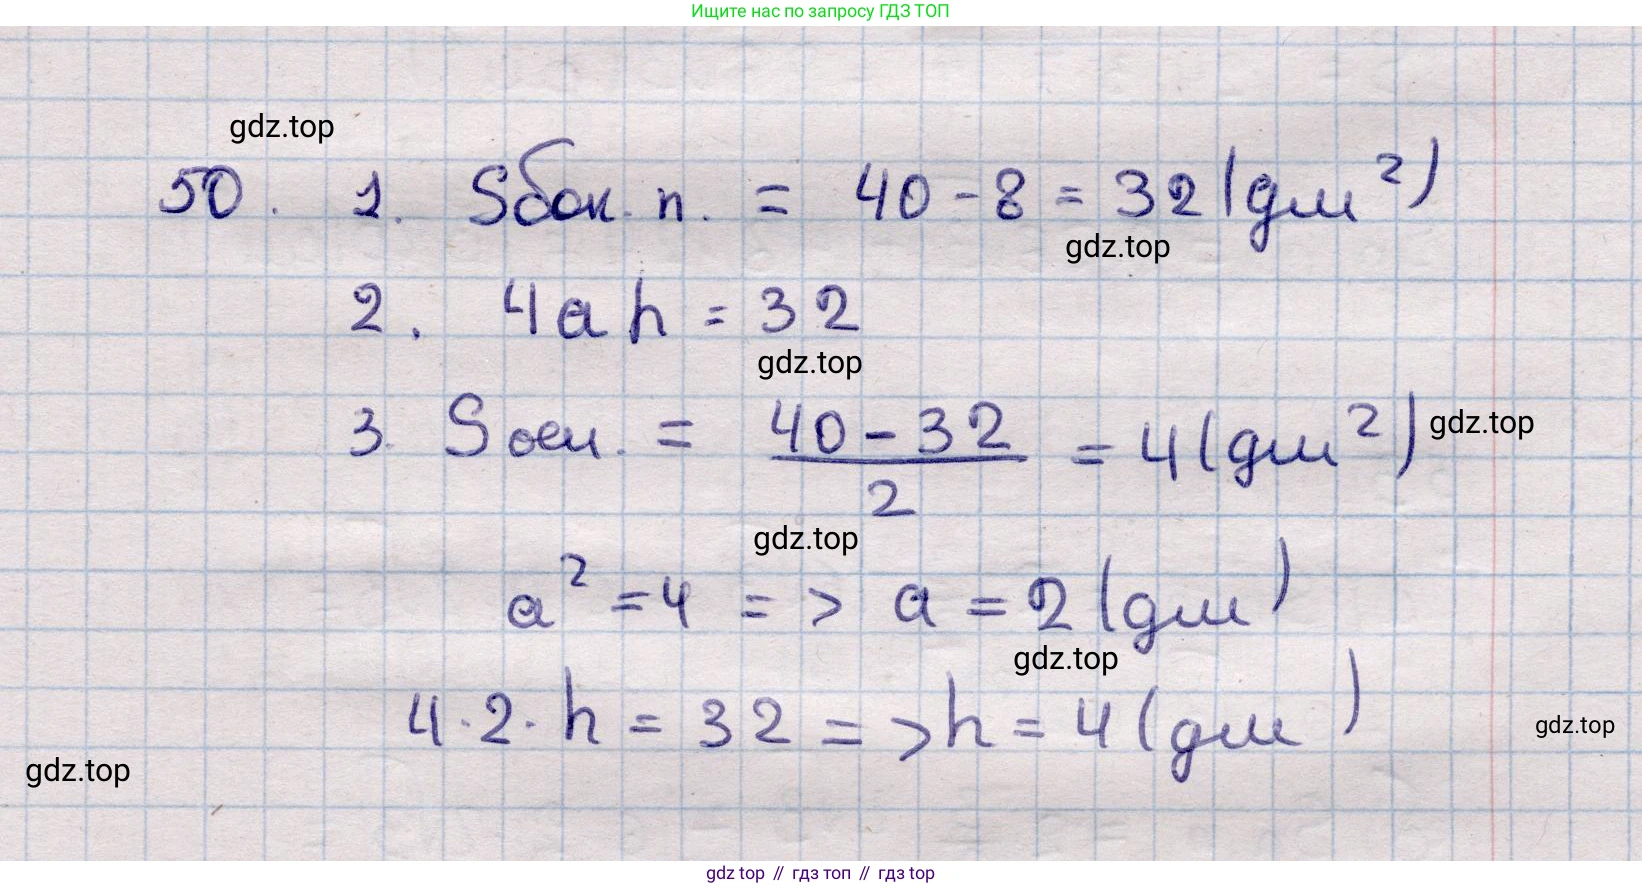 Ищите нас по запросу ГДЗ ТОП
gdz.top
50. 1. Sбок. п. = 40 - 8 = 32 (дм²)
gdz.top
2. 4ah = 32
gdz.top
3. Sосн. = (40 - 32)/2 = 4 (дм²) gdz.top
gdz.top
a² = 4 => a = 2 (дм)
gdz.top
4 · 2 · h = 32 => h = 4 (дм)
gdz.top
gdz.top
gdz top // гдз топ // гдз top